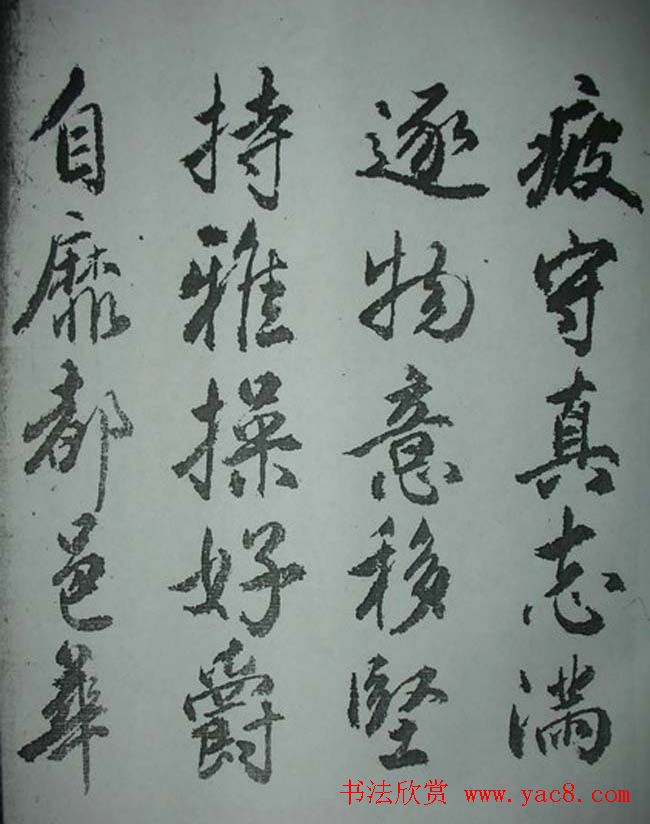 疲守真志满
逐物意移坚
持雅操好爵
自靡都邑华
书法欣赏 www.yac8.com